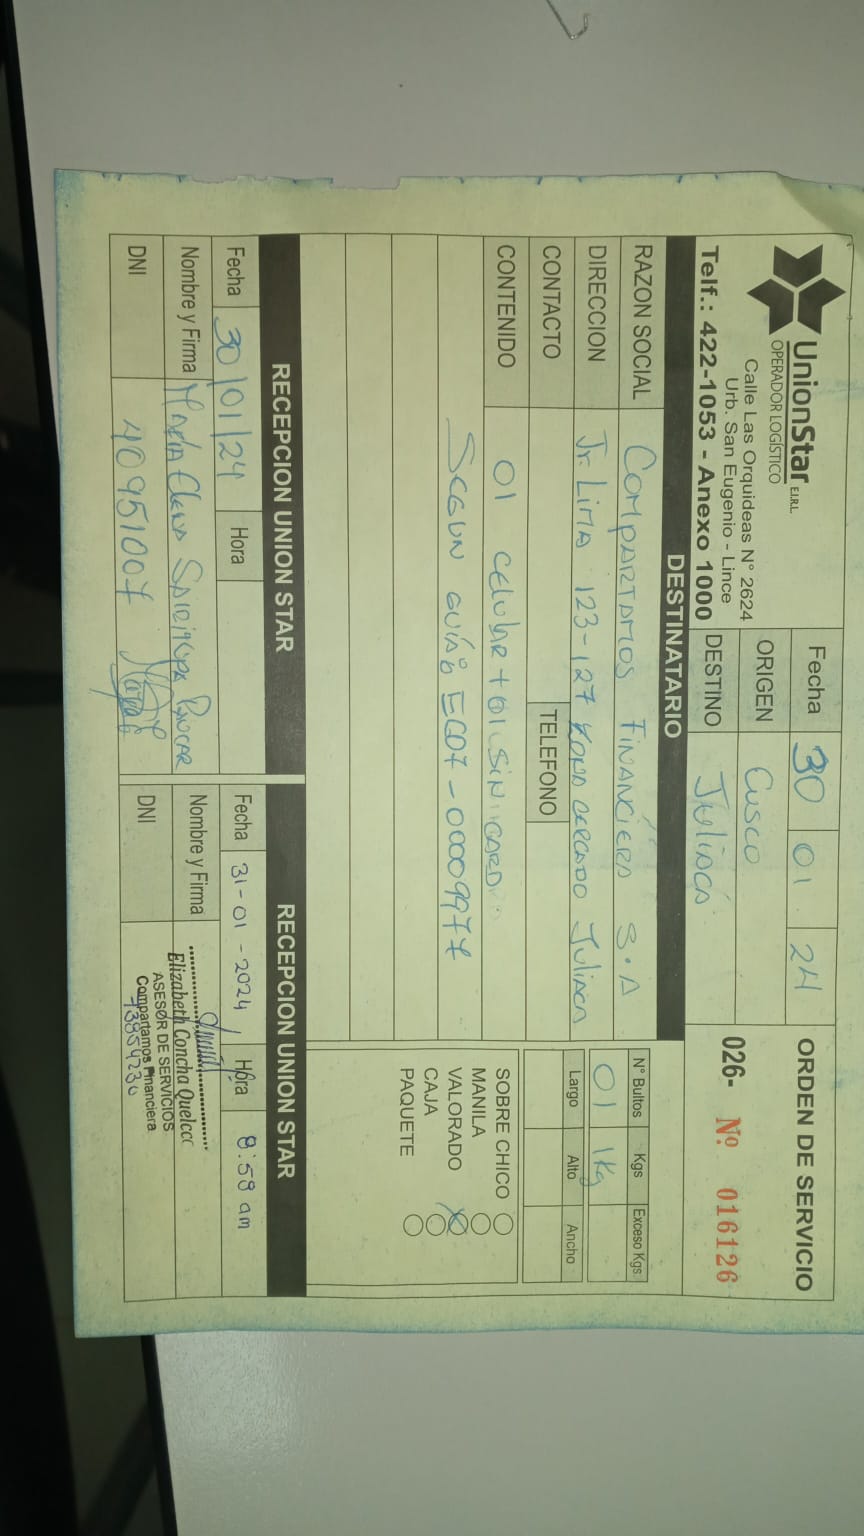 UnionStar E.I.R.L.
OPERADOR LOGÍSTICO
Calle Las Orquideas N° 2624
Urb. San Eugenio - Lince
Telf.: 422-1053 - Anexo 1000
Fecha 30 01 24
ORIGEN Cusco
DESTINO Juliaca
ORDEN DE SERVICIO
026- Nº 016126
DESTINATARIO
RAZON SOCIAL COMPARTAMOS FINANCIERA S.A
DIRECCION Jr. LIMA 123-127 CERCADO JULIACA
CONTACTO TELEFONO
CONTENIDO 01 CELULAR + 01 SIN CARD
SEGUN GUIA EG07-00009977
N° Bultos Kgs Exceso Kgs
01 1Kg
Largo Alto Ancho
SOBRE CHICO
MANILA
VALORADO X
CAJA
PAQUETE
RECEPCION UNION STAR
Fecha 30/01/24 Hora
Nombre y Firma
DNI 40951007
RECEPCION UNION STAR
Fecha 31-01-2024 Hora 8:59 am
Nombre y Firma
Elizabeth Concha
ASESOR DE SERVICIOS
Compartamos Financiera
DNI